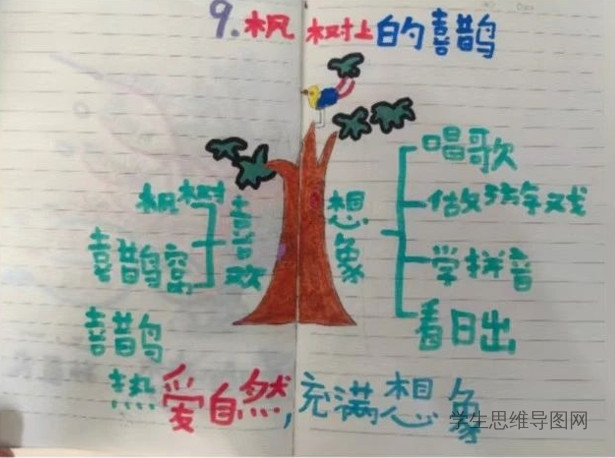 9.枫树上的喜鹊
枫树
喜鹊窝
喜鹊
喜欢
想象
唱歌
做游戏
学拼音
看日出
热爱自然,充满想象
学生思维导图网